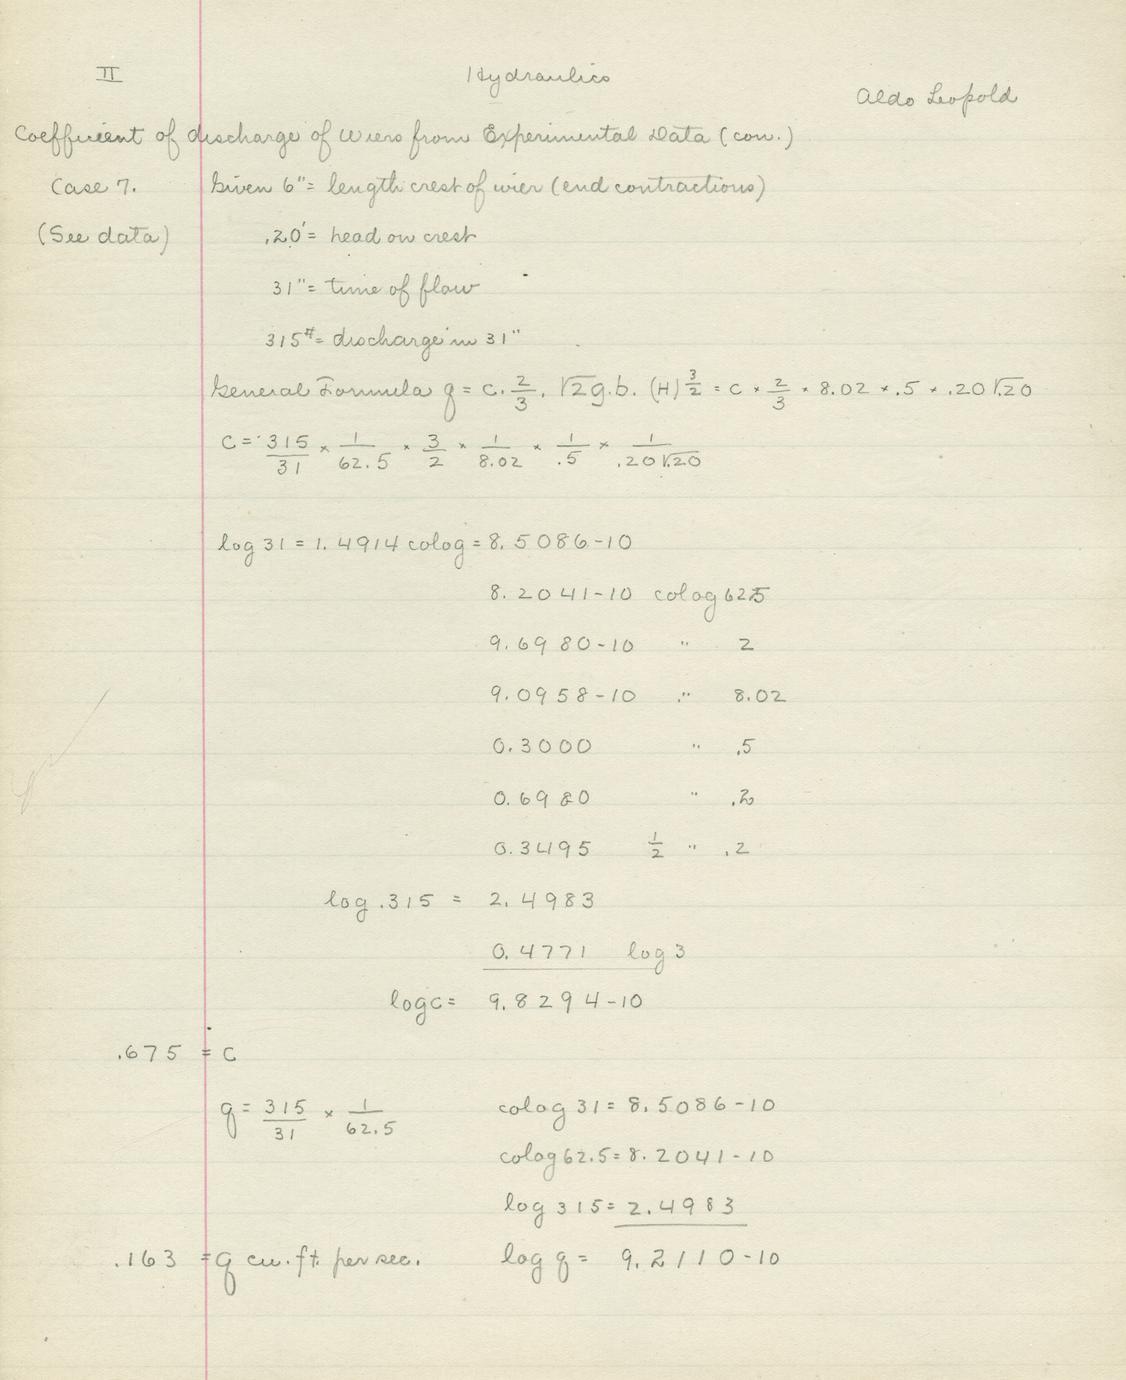 II Hydraulics
Aldo Leopold
Coefficient of discharge of Wiers from Experimental Data (con.)
Case 7. Given 6" = length crest of wier (end contractions)
(See data) .20' = head on crest
31" = time of flow
315# = discharge in 31"
General Formula q = c. 2/3 . √2g.b. (H) 3/2 = c × 2/3 × 8.02 × .5 × .20 √.20
C = 315/31 × 1/62.5 × 3/2 × 1/8.02 × 1/.5 × 1/.20√.20
log 31 = 1.4914 colog = 8.5086-10
8.2041-10 colog 62.5
9.6980-10 " 2
9.0958-10 " 8.02
0.3000 " .5
0.6980 " .2
0.3495 1/2 " .2
log .315 = 2.4983
0.4771 log 3
log c = 9.8294-10
.675 = C
q = 315/31 × 1/62.5 colog 31 = 8.5086-10
colog 62.5 = 8.2041-10
log 315 = 2.4983
.163 = q cu. ft. per sec. log q = 9.2110-10